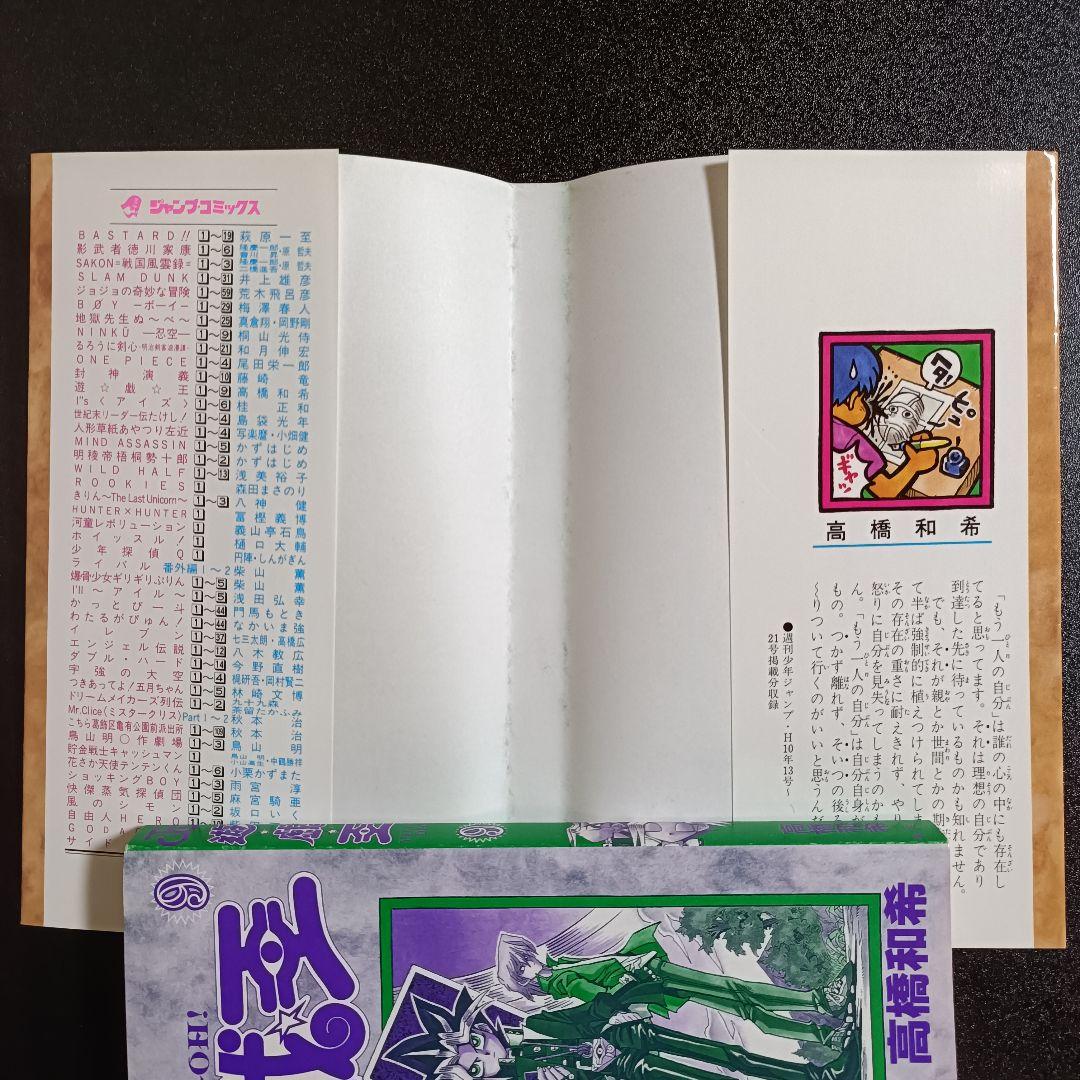 ジャンプ・コミックス
BASTARD!! 1～19 萩原一至
影武者徳川家康 1～6 隆慶一郎・原哲夫 會川昇
SAKON=戦国風雲録= 1～3 隆慶一郎・原哲夫 二橋進吾
SLAM DUNK 1～31 井上雄彦
ジョジョの奇妙な冒険 1～59 荒木飛呂彦
BØY ―ボーイ― 1～29 梅澤春人
地獄先生ぬ～べ～ 1～25 真倉翔・岡野剛
NINKŪ ―忍空― 1～9 桐山光侍
るろうに剣心-明治剣客浪漫譚- 1～21 和月伸宏
ONE PIECE 1～4 尾田栄一郎
封神演義 1～10 藤崎竜
遊☆戯☆王 1～9 高橋和希
I"s〈アイズ〉 1～6 桂正和
世紀末リーダー伝たけし! 1～4 島袋光年
人形草紙あやつり左近 1～4 写楽麿・小畑健
MIND ASSASSIN 1～5 かずはじめ
明稜帝梧桐勢十郎 1～2 かずはじめ
WILD HALF 1～13 浅美裕子
ROOKIES 1 森田まさのり
きりん～The Last Unicorn～ 1～3 八神健
HUNTER×HUNTER 1 冨樫義博
河童レボリューション 1 義山亭石鳥
ホイッスル! 1 樋口大輔
少年探偵Q 1 円陣・しんがぎん
ライバル 番外編1～2 柴山薫
爆骨少女ギリギリぷりん 1～5 柴山薫
I'll ～アイル～ 1～5 浅田弘幸
かっとび一斗 1～44 門馬もとき
わたるがぴゅん! 1～44 なかいま強
イレブン 1～37 七三太朗・高橋広
エンジェル伝説 1～12 八木教広
ダブル・ハード 1～14 今野直樹
宇強の大空 1～4 梶研吾・岡村賢二
つきあってよ!五月ちゃん 1～5 林崎文博
ドリームメイカーズ列伝 1～2 九十九森 茶留たかふみ
Mr.Clice(ミスタークリス) Part1～2 秋本治
こちら葛飾区亀有公園前派出所 1～109 秋本治
鳥山明○作劇場 1～3 鳥山明
貯金戦士キャッシュマン 1 鳥山明 小山高生・中鶴勝祥
花さか天使テンテンくん 1～6 小栗かずまた
ショッキングBOY 1～3 雨宮淳
快傑蒸気探偵団 1～5 麻宮騎亜
風のシモン 1～2 坂口いく
自由人HERO
GODA
サイド
クワ!
ピン
ギャッ
高橋和希
「もう一人の自分」は誰の心の中にも存在し
てると思ってます。それは理想の自分であり
到達した先に待っているものかも知れません。
でも、それが親とか世間とかの期
て半ば強制的に植えつけられてしま
その存在の重さに耐えきれず、やり
怒りに自分を見失ってしまうのかも
ん。「もう一人の自分」は自分自身が
もの。つかず離れず、そいつの後ろ
～りついて行くのがいいと思うんだ
●週刊少年ジャンプ・H10年13号～
21号掲載分収録
遊・戯・王
9
高橋和希
9
王
OH!
高橋和希